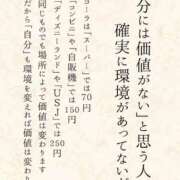 分には価値がない」と思う人
確実に環境があってないだ
コーラは「スーパー」では70円
「コンビニ」や「自販機」では150円
ディズニーランド」や「USJ」では250円
同じものでも場所によって価値は変わります
だから「自分」も環境を変えれば価値は変わり